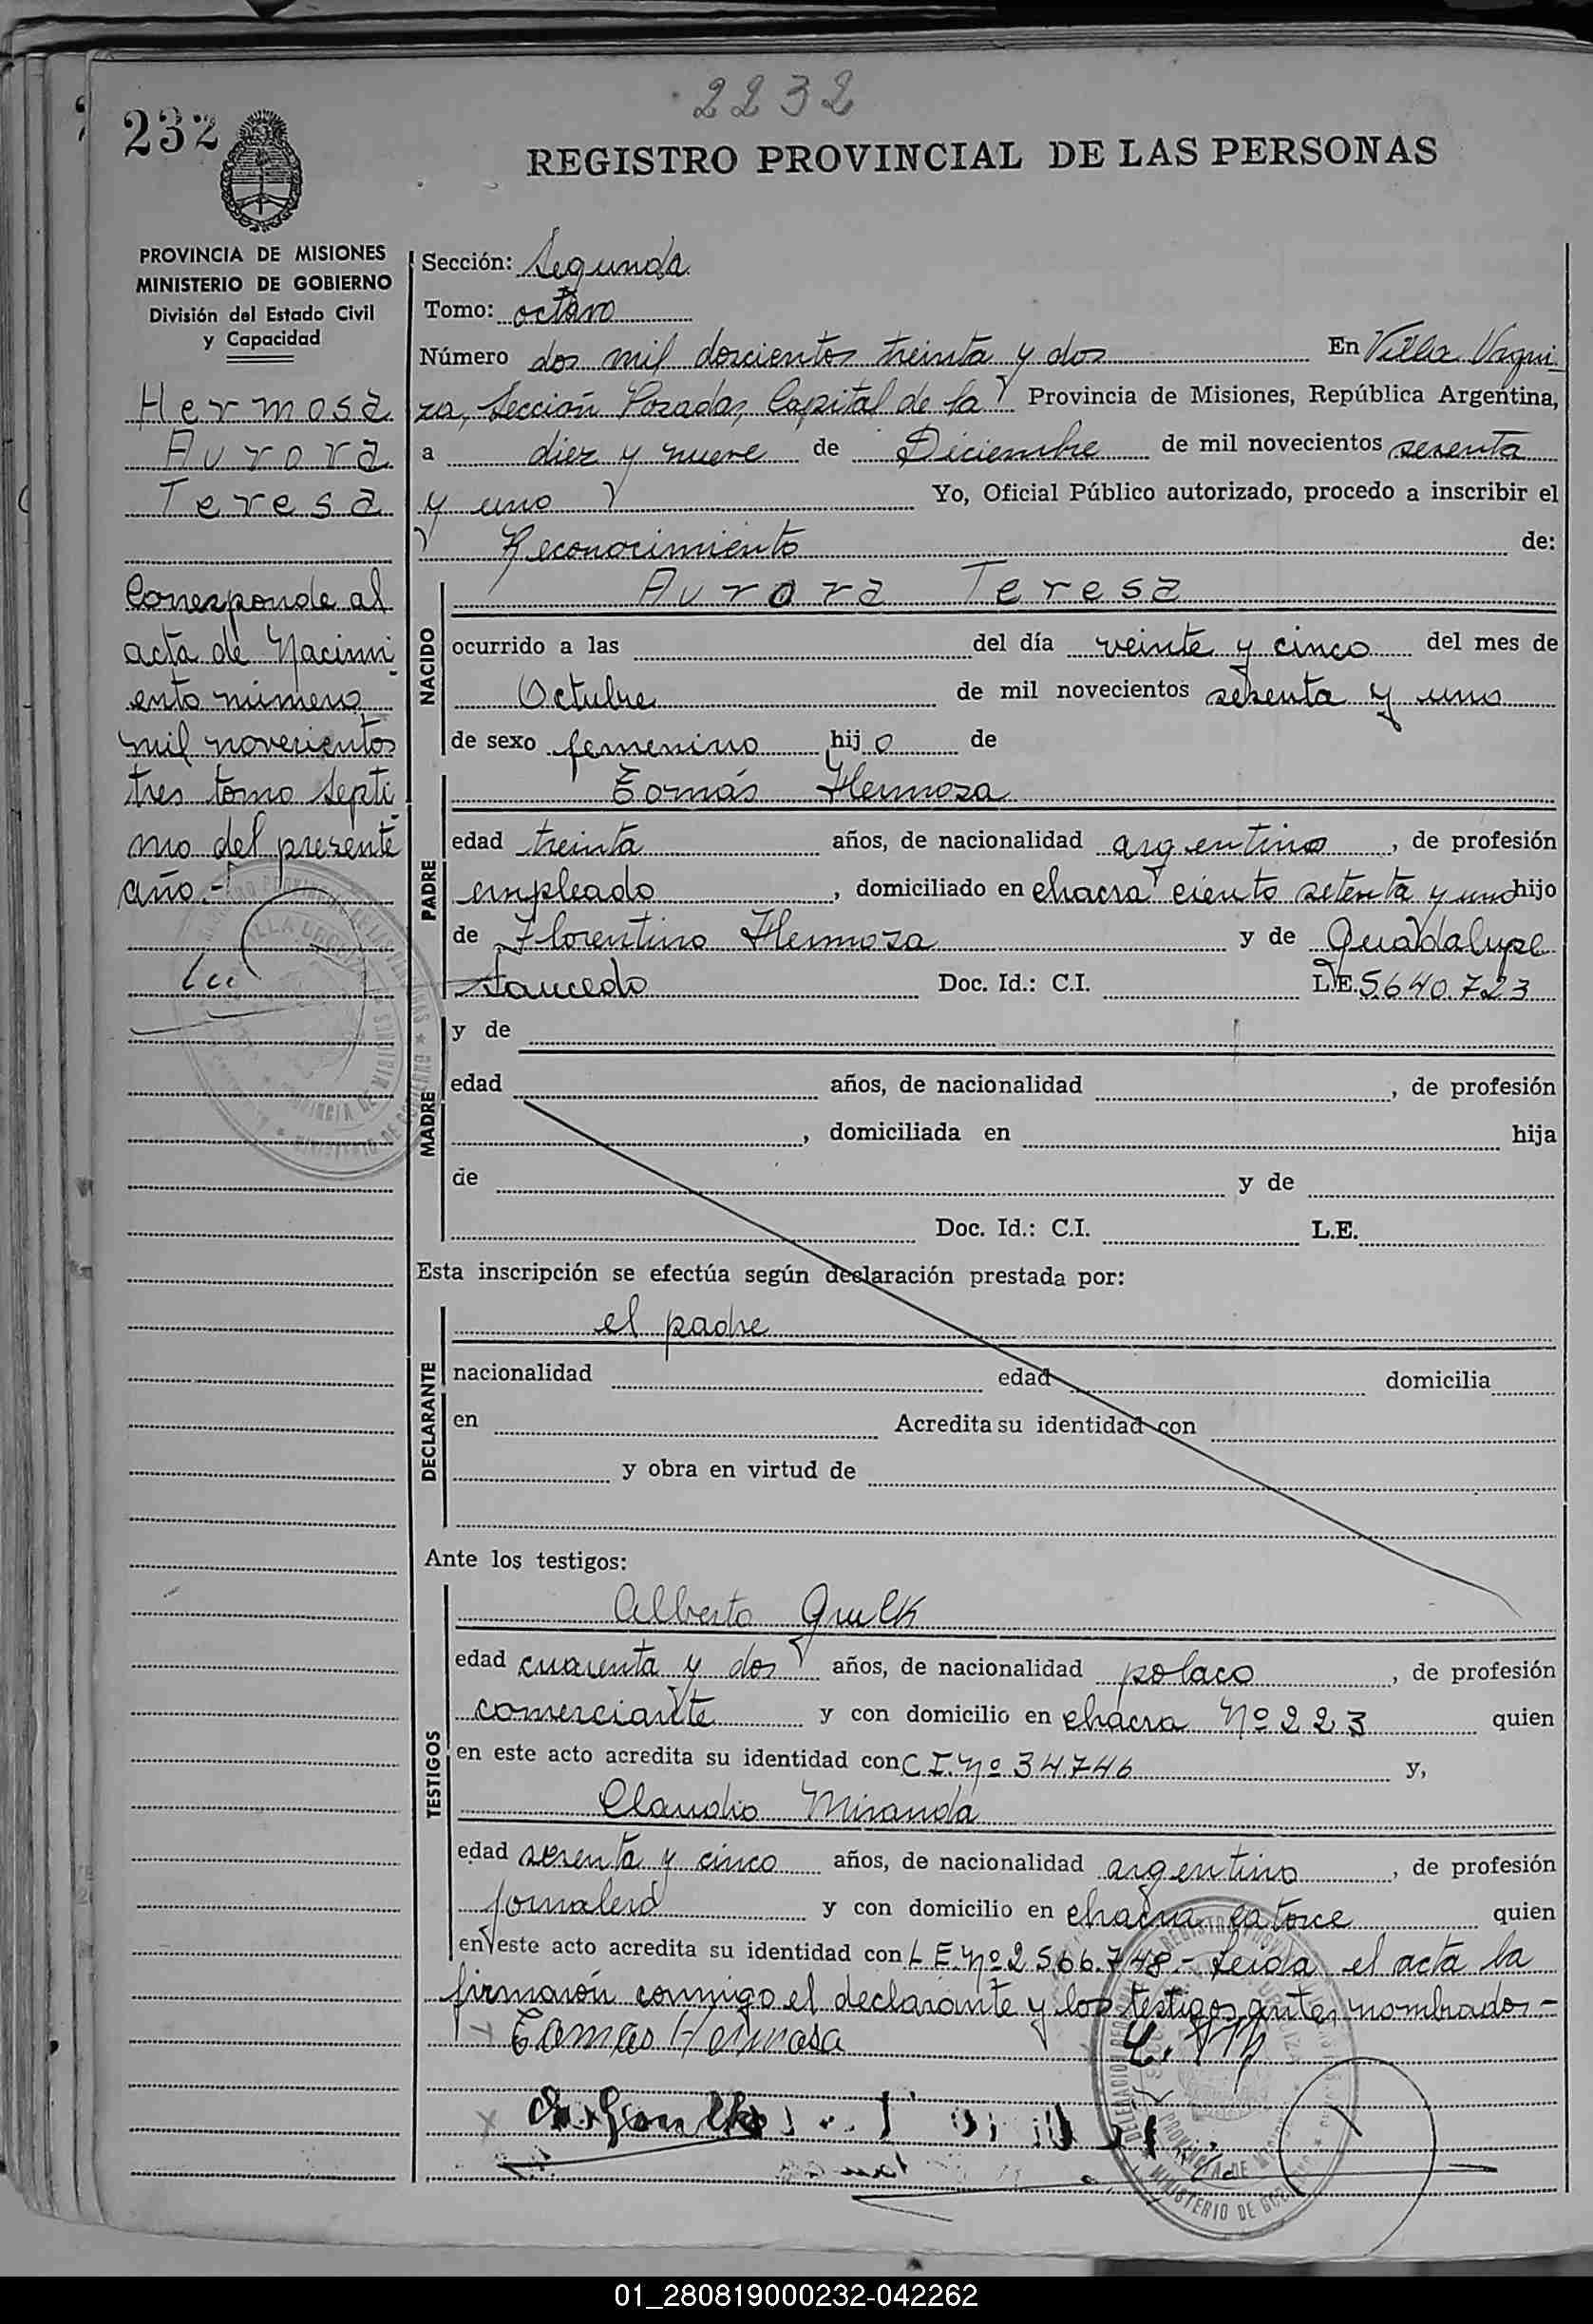 2232
232
REGISTRO PROVINCIAL DE LAS PERSONAS
PROVINCIA DE MISIONES
MINISTERIO DE GOBIERNO
División del Estado Civil
y Capacidad
Hermosa
Aurora
Teresa
Corresponde al
acta de Nacimi
ento número
mil novecientos
tres tomo septi
mo del presente
año.-
Sección: Segunda
Tomo: octavo
Número dos mil doscientos treinta y dos En Villa Urqui
za, Sección Posadas, Capital de la Provincia de Misiones, República Argentina,
a diez y nueve de Diciembre de mil novecientos sesenta
y uno Yo, Oficial Público autorizado, procedo a inscribir el
Reconocimiento de:
NACIDO
Aurora Teresa
ocurrido a las del día veinte y cinco del mes de
Octubre de mil novecientos sesenta y uno
de sexo femenino hijo de
PADRE
Tomás Hermosa
edad treinta años, de nacionalidad argentino, de profesión
empleado, domiciliado en chacra ciento setenta y uno hijo
de Florentino Hermosa y de Guadalupe
Saucedo Doc. Id.: C.I. L.E. 5.640.723
MADRE
y de
edad años, de nacionalidad , de profesión
, domiciliada en hija
de y de
Doc. Id.: C.I. L.E.
Esta inscripción se efectúa según declaración prestada por:
DECLARANTE
el padre
nacionalidad edad domicilia
en Acredita su identidad con
y obra en virtud de
Ante los testigos:
TESTIGOS
Alberto
edad cuarenta y dos años, de nacionalidad polaco, de profesión
comerciante y con domicilio en chacra Nº 223 quien
en este acto acredita su identidad con C.I. Nº 34.746 y,
Claudio Miranda
edad sesenta y cinco años, de nacionalidad argentino, de profesión
jornalero y con domicilio en chacra catorce quien
en este acto acredita su identidad con L.E. Nº 2.566.748 - Leida el acta la
firmaron conmigo el declarante y los testigos antes nombrados.-
Tomas Hermosa
01_280819000232-042262